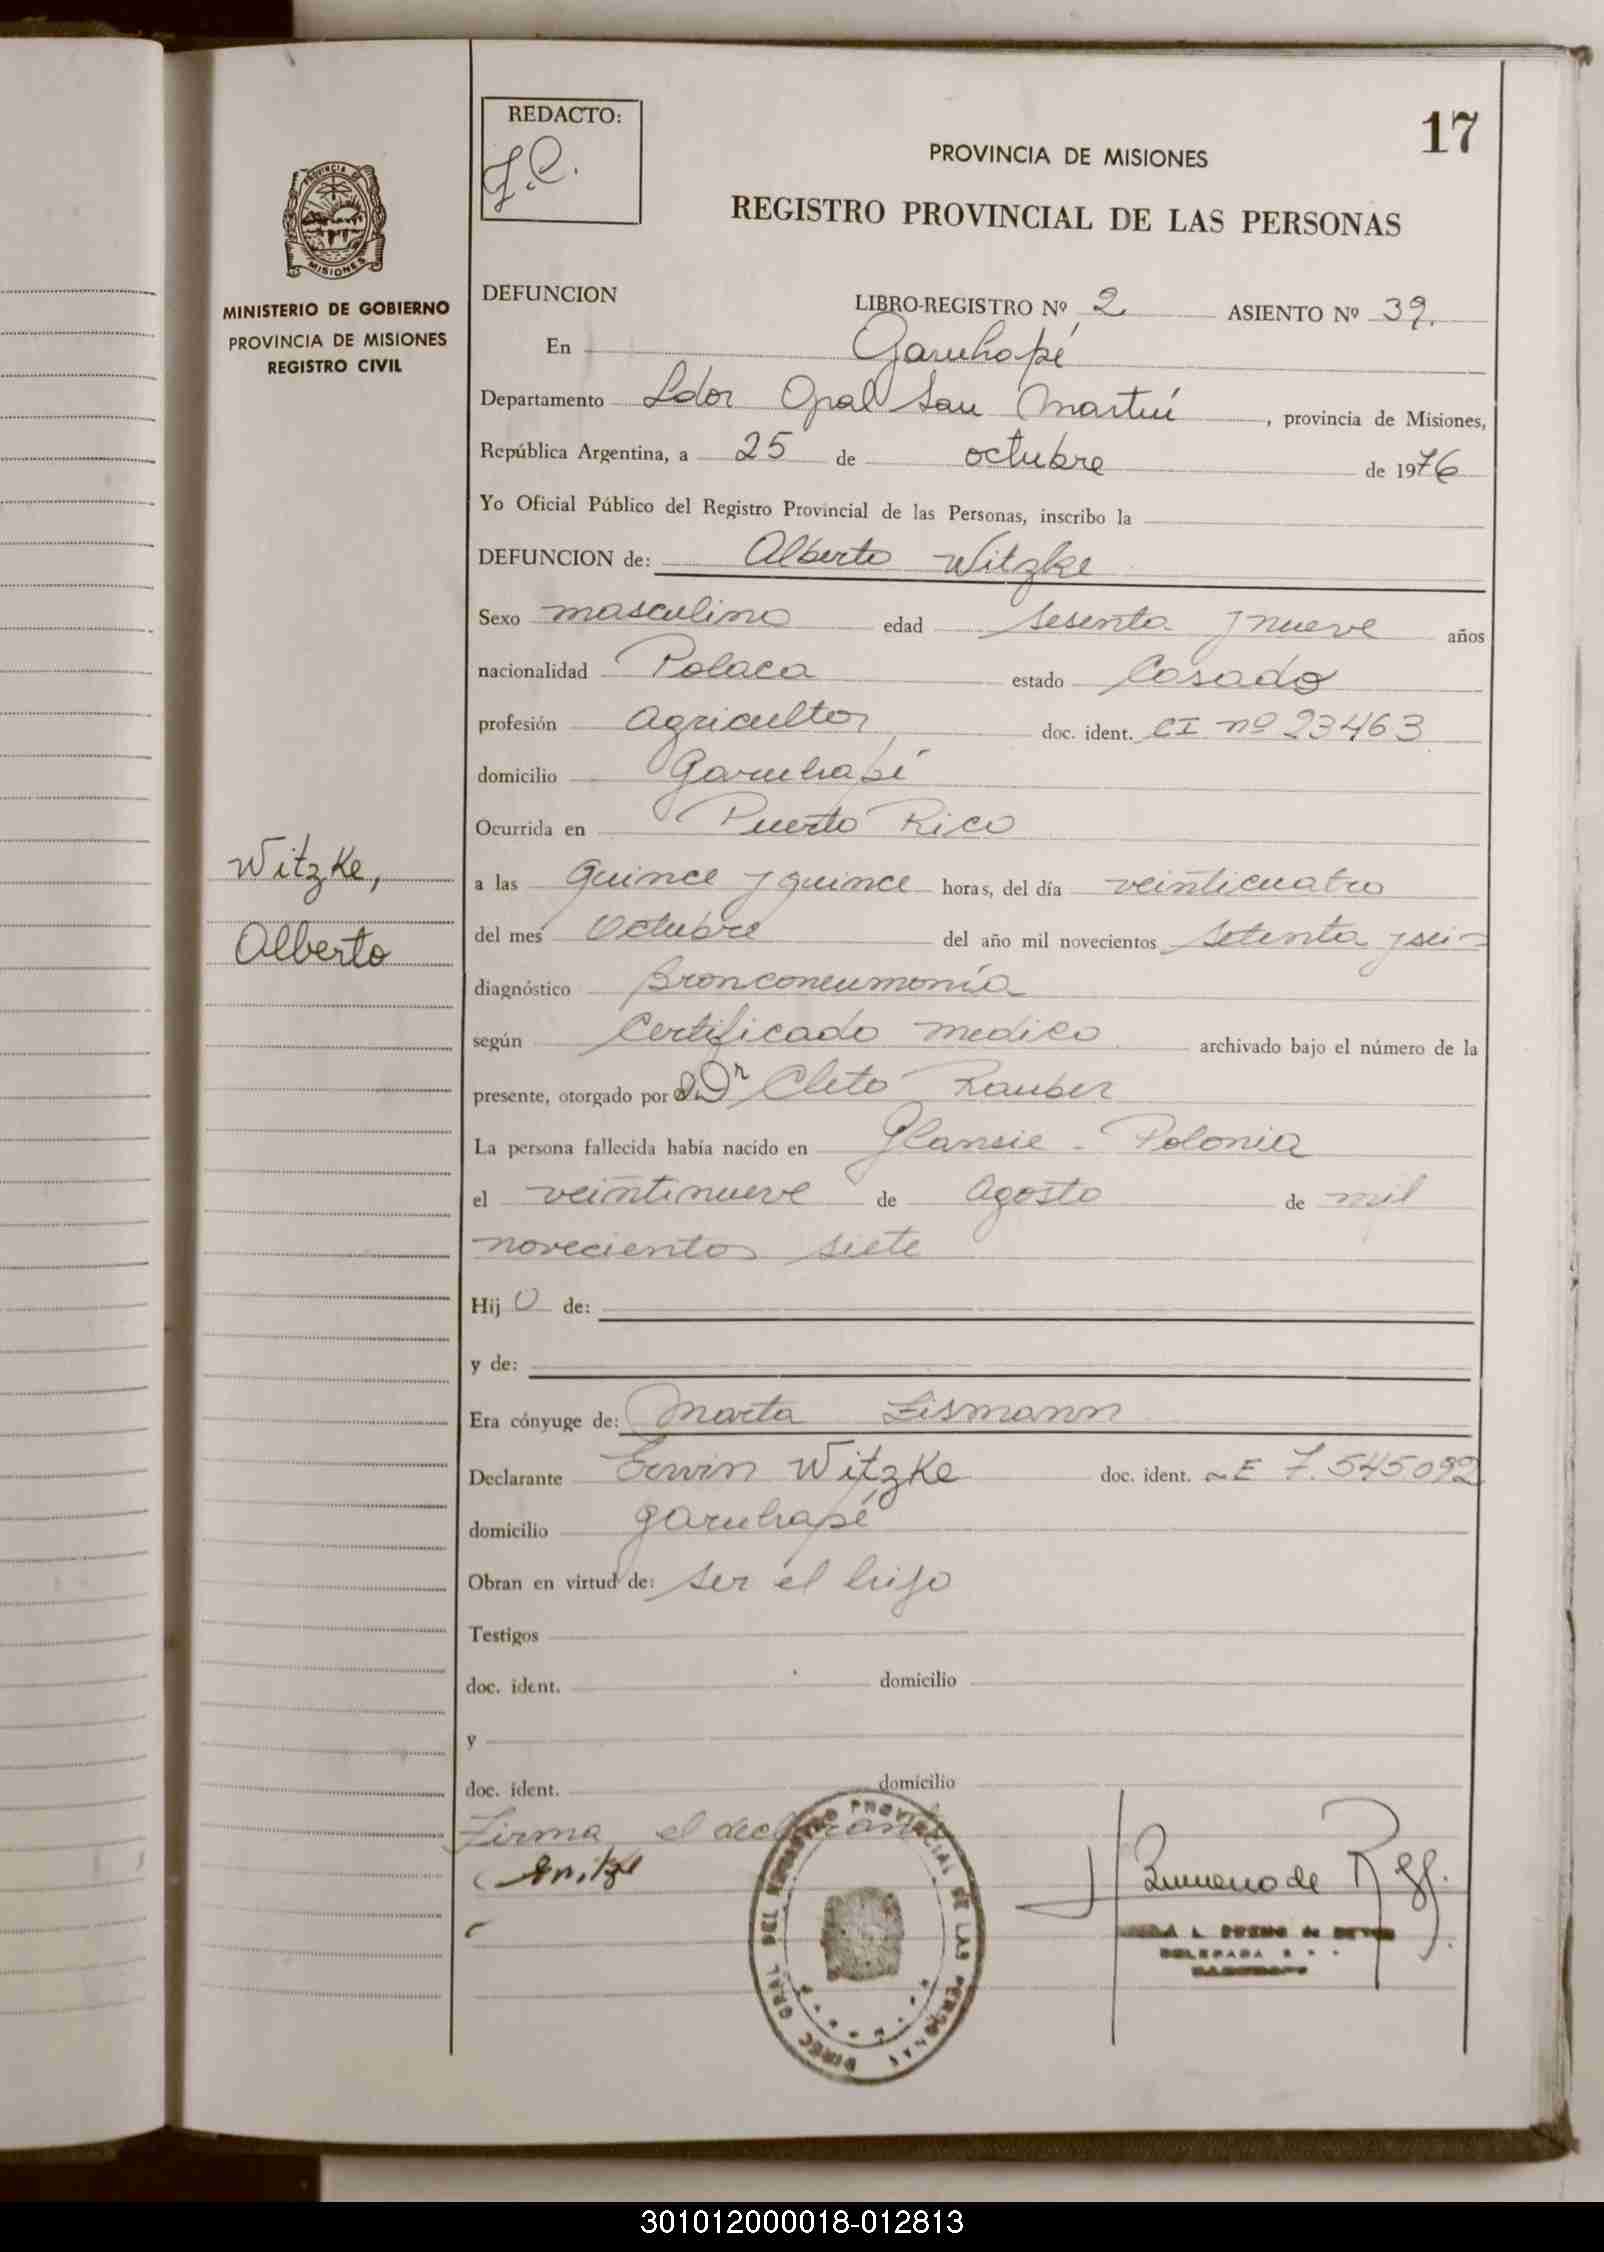 REDACTO:
17
PROVINCIA DE MISIONES
REGISTRO PROVINCIAL DE LAS PERSONAS
PROVINCIA DE
MISIONES
MINISTERIO DE GOBIERNO
PROVINCIA DE MISIONES
REGISTRO CIVIL
DEFUNCION LIBRO-REGISTRO Nº 2 ASIENTO Nº 39.
En Garuhapé
Departamento Ldor Gral San Martín, provincia de Misiones,
República Argentina, a 25 de octubre de 1976
Yo Oficial Público del Registro Provincial de las Personas, inscribo la
DEFUNCION de: Alberto Witzke
Sexo masculino edad sesenta y nueve años
nacionalidad Polaca estado Casado
profesión agricultor doc. ident. CI nº 23463
domicilio Garuhapé
Ocurrida en Puerto Rico
Witzke,
Alberto
a las quince y quince horas, del día veinticuatro
del mes Octubre del año mil novecientos setenta y seis
diagnóstico Bronconeumonía
según Certificado medico archivado bajo el número de la
presente, otorgado por Dr Cleto Rauber
La persona fallecida había nacido en Glansie - Polonia
el veintinueve de Agosto de mil
novecientos siete
Hij O de:
y de:
Era cónyuge de: Marta Lismann
Declarante Erwin Witzke doc. ident. LE 7.545092
domicilio Garuhapé
Obran en virtud de: ser el hijo
Testigos
doc. ident. domicilio
y
doc. ident. domicilio
Firma el declarante
DIREC GRAL DEL REGISTRO PROVINCIAL DE LAS PERSONAS
301012000018-012813